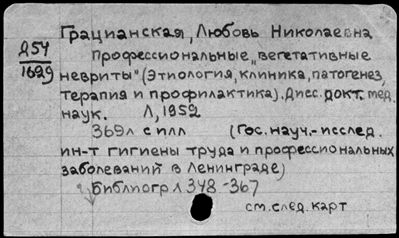 Грацианская, Любовь Николаевна
Д54
1629
Профессиональные „вегетативные
невриты" (Этиология, клиника, патогенез,
терапия и профилактика). Дисс. докт. мед.
наук. Л, 1952
369л с илл (Гос. науч.-исслед.
ин-т гигиены труда и профессиональных
заболеваний в Ленинграде)
Библиогр л 348-367
см. след. карт